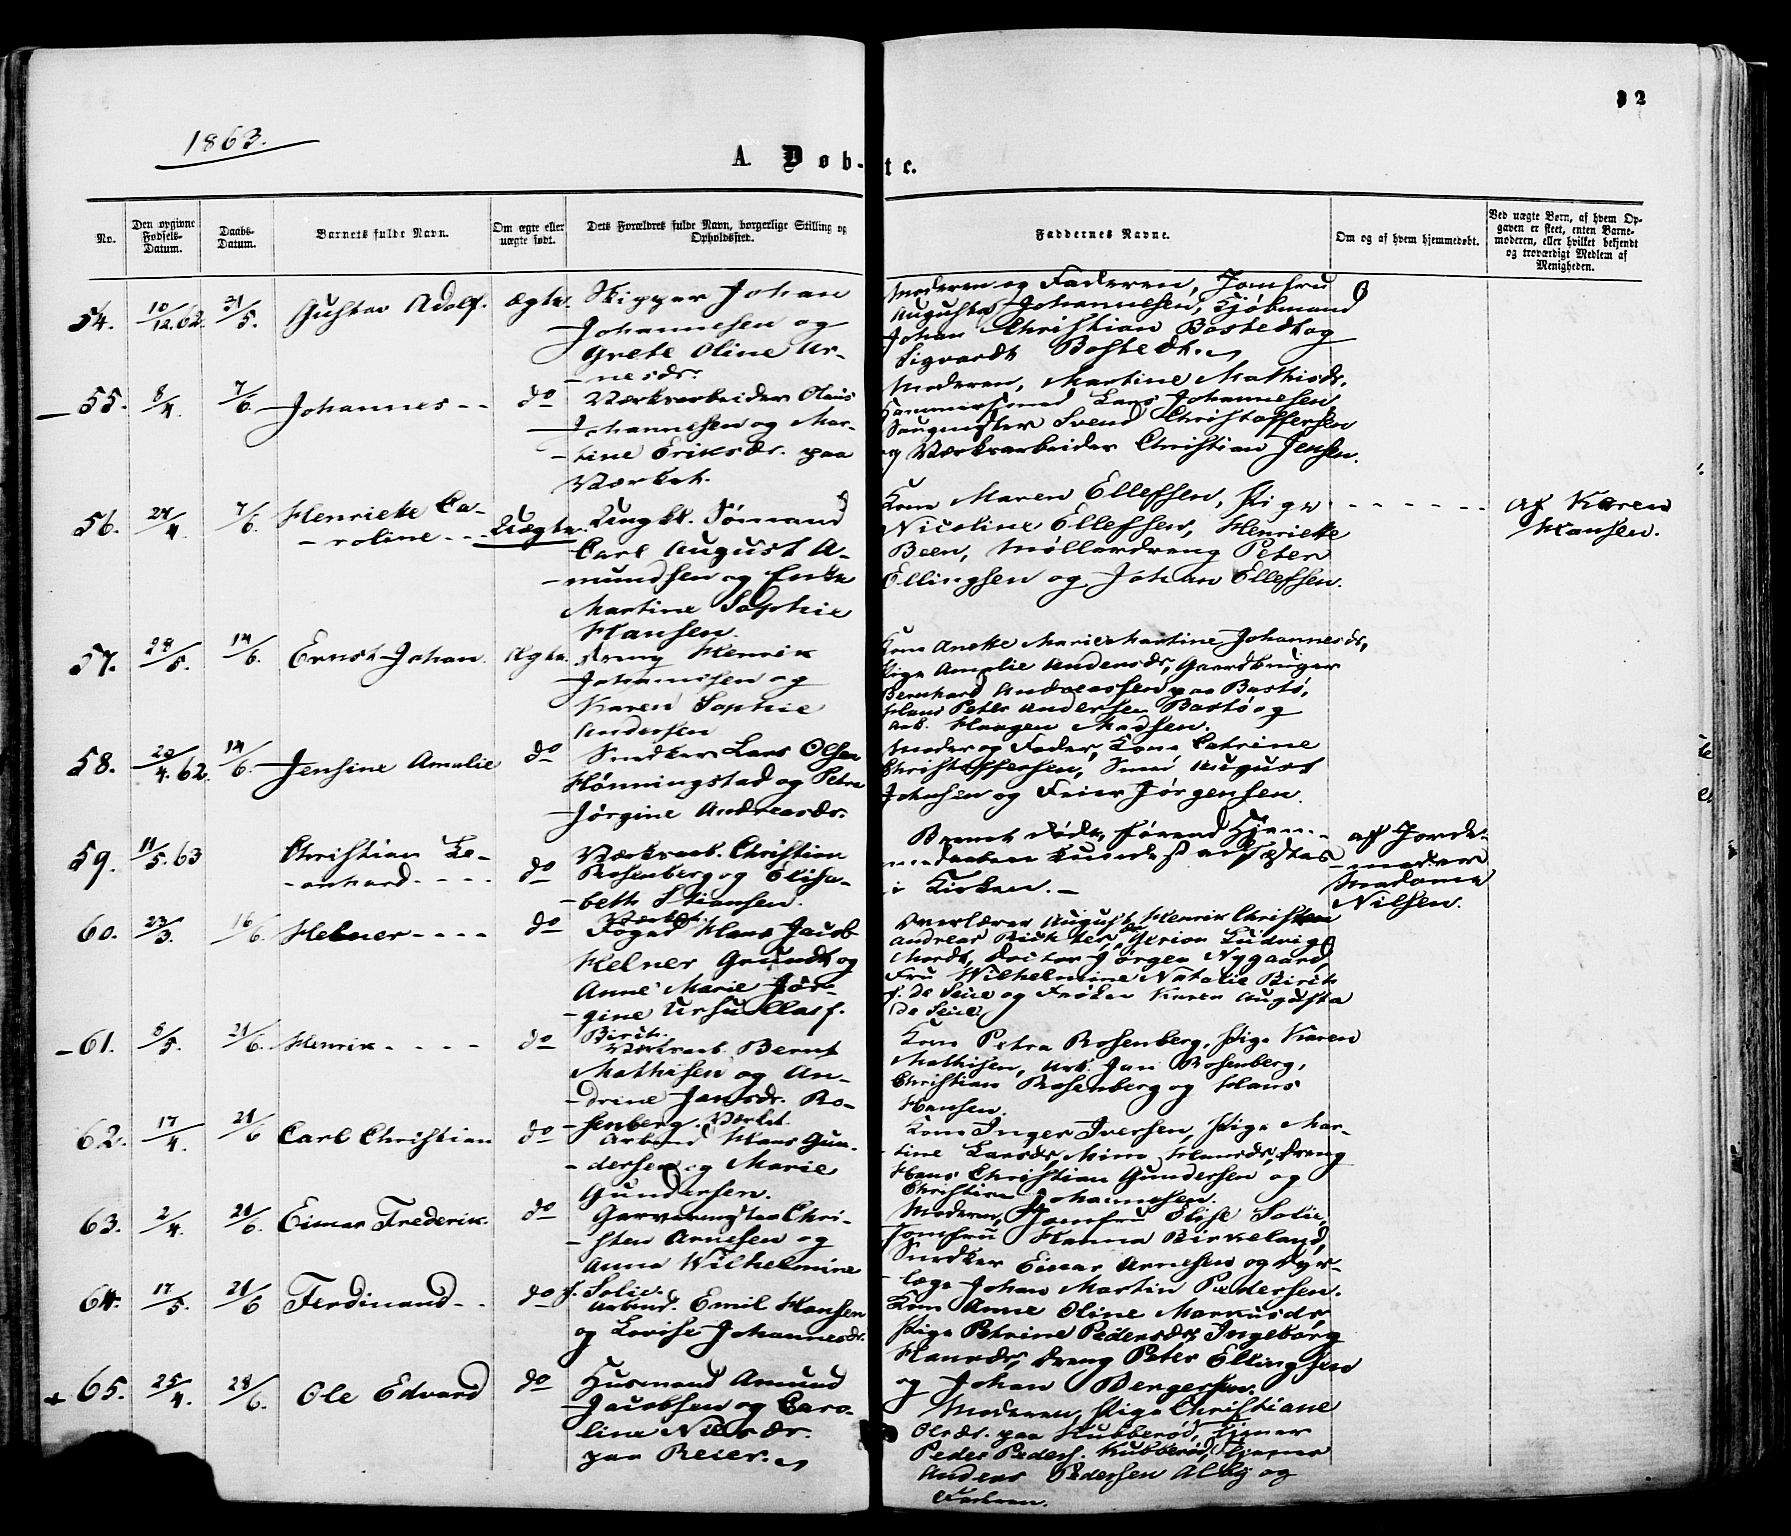 32
1863.
A. Døb-te.
No.
Den opgivne Fødsels-Datum.
Daabs-Datum.
Barnets fulde Navn.
Om ægte eller uægte født.
Dets Forældres fulde Navn, borgerlige Stilling og Opholdssted.
Faddernes Navne.
Om og af hvem hjemmedøbt.
Ved uægte Børn, af hvem Op-
gaven er skeet, enten Barne-
moderen, eller hvilket bekjendt
og troværdigt Medlem af
Menigheden.
54. 10/12.62. 31/5. Gustav Adolf. Ægte. Skipper Johan
Johannesen og
Grete Oline Ar-
nesdr.
Moderen og Faderen, Jomfru
Augusta Johannesen, Kjøbmand
Johan Christian Bostedt og
Sigvardt Bostedt.
55. 8/4. 7/6. Johannes do Værksarbeider Olaus
Johannesen og Mar-
tine Eriksdr. paa
Værket.
Moderen, Martine Mathisdr.
Hammersmed Lars Johannesen
Saugmester Svend Christoffersen
og Værksarbeider Christian Jensen.
56. 24/4. 7/6. Henrieke Ca-
roline Uægte. Ungkl. Sømand
Carl August A-
mundsen og Enke
Martine Sophie
Hansen.
Kone Maren Ellefsen, Pige
Nicoline Ellefsen, Henrieke
Been, Møllerdreng Peter
Ellingsen og Johan Ellefsen.
Af Karen
Hansen.
57. 28/5. 14/6. Ernst Johan. Ægte. Dreng Henrik
Johannesen og
Karen Sophie
Andersen
Kone Aneke Marie Martine Johannesdr,
Pige Amalie Andersdr, Gaardbruger
Bernhard Andreassen paa Bastø,
Hans Peter Andersen Bastø og
Arb. Haagen Madsen.
58. 20/4.62. 14/6. Jensine Amalie do Snedker Lars Olsen
Hønningstad og Petra
Jørgine Andreasdr.
Moder og Fader, Kone Catrine
Christoffersen, Smed August
Johnsen og Feier Jørgensen.
59. 11/5.63 Christian Le-
onhard do Værksarb. Christian
Rosenberg og Elisa-
beth Stiansen.
Værket.
Barnet døde, førend Hjem-
medaaben kunde stadfæstes
i Kirken.
af Jorde-
moderen
Madame
Nilsen.
60. 23/3. 16/6. Helner do Foged Hans Jacob
Helner Grundt og
Anne Marie Jør-
gine Ursulla f.
Birch.
Overlærer August Henrik Christian
Andreas Richter,
Mordt, Doctor Jørgen Nygaard,
Fru Wilhelmine Natalie Birch
f. de Seue og Frøken Karen Augusta
de Seue
61. 8/5. 21/6. Henrik do Værksarb. Bernt
Mathisen og An-
drine Jansdr. Ro-
senberg. Værket.
Kone Petra Rosenberg, Pige Karen
Mathisen, Arb. Jan Rosenberg,
Christian Rosenberg og Hans
Hansen.
62. 17/4. 21/6 Carl Christian do Arbmd Hans Gun-
dersen og Marie
Gundersen.
Kone Inger Iversen, Pige Mar-
tine Larsdr, Mina Hansdr, Dreng
Hans Christian Gundersen og
Christian Johannesen.
63. 2/4. 21/6. Eimar Frederik. do Garvermester Chri-
sten Arnesen og
Anna Wilhelmine
f. Solie.
Moderen, Jomfru Elise Solie,
Jomfru Hanna Birkeland,
Snedker Eimar Arnesen og Dyr-
læge Johan Martin Pedersen.
64. 17/5. 21/6 Ferdinand do Arbmd. Emil Hansen
og Lovise Johannesdr.
Kone Anne Oline Markusdr,
Pige Petrine Pedersdr, Ingeborg
Hansdr, Dreng Peter Ellingsen
og Johan Bengersen.
65. 25/4. 28/6. Ole Edvard do Husmand Amund
Jacobsen og Caro-
line Nilsdr.
paa Reier.
Moderen, Pige Christiane
Olsdr. paa Kubberød, Tjener
Peder Peders. Kubberød, Tjener
Anders Pedersen Alby og
Faderen.